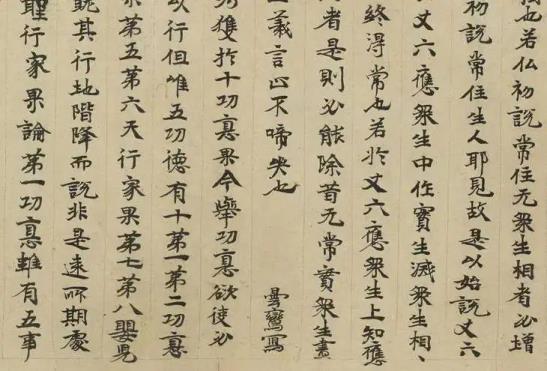 也若仏初說常住无衆生相者必增
初說常住生人耶見故是以始說丈六
丈六應衆生中住實生滅衆生相〻
終得常也若於丈六應衆生上知應
者是則必能除昔无常實衆生
義言止不啼失也 曇鸞寫
獲於十功悳果今舉功悳欲使必
以行但唯五功德有十第一第二功悳
第五第六天行家果第七第八嬰兒
其行地階降而說非是遠所期處
聖行家果論第一功悳雖有五事